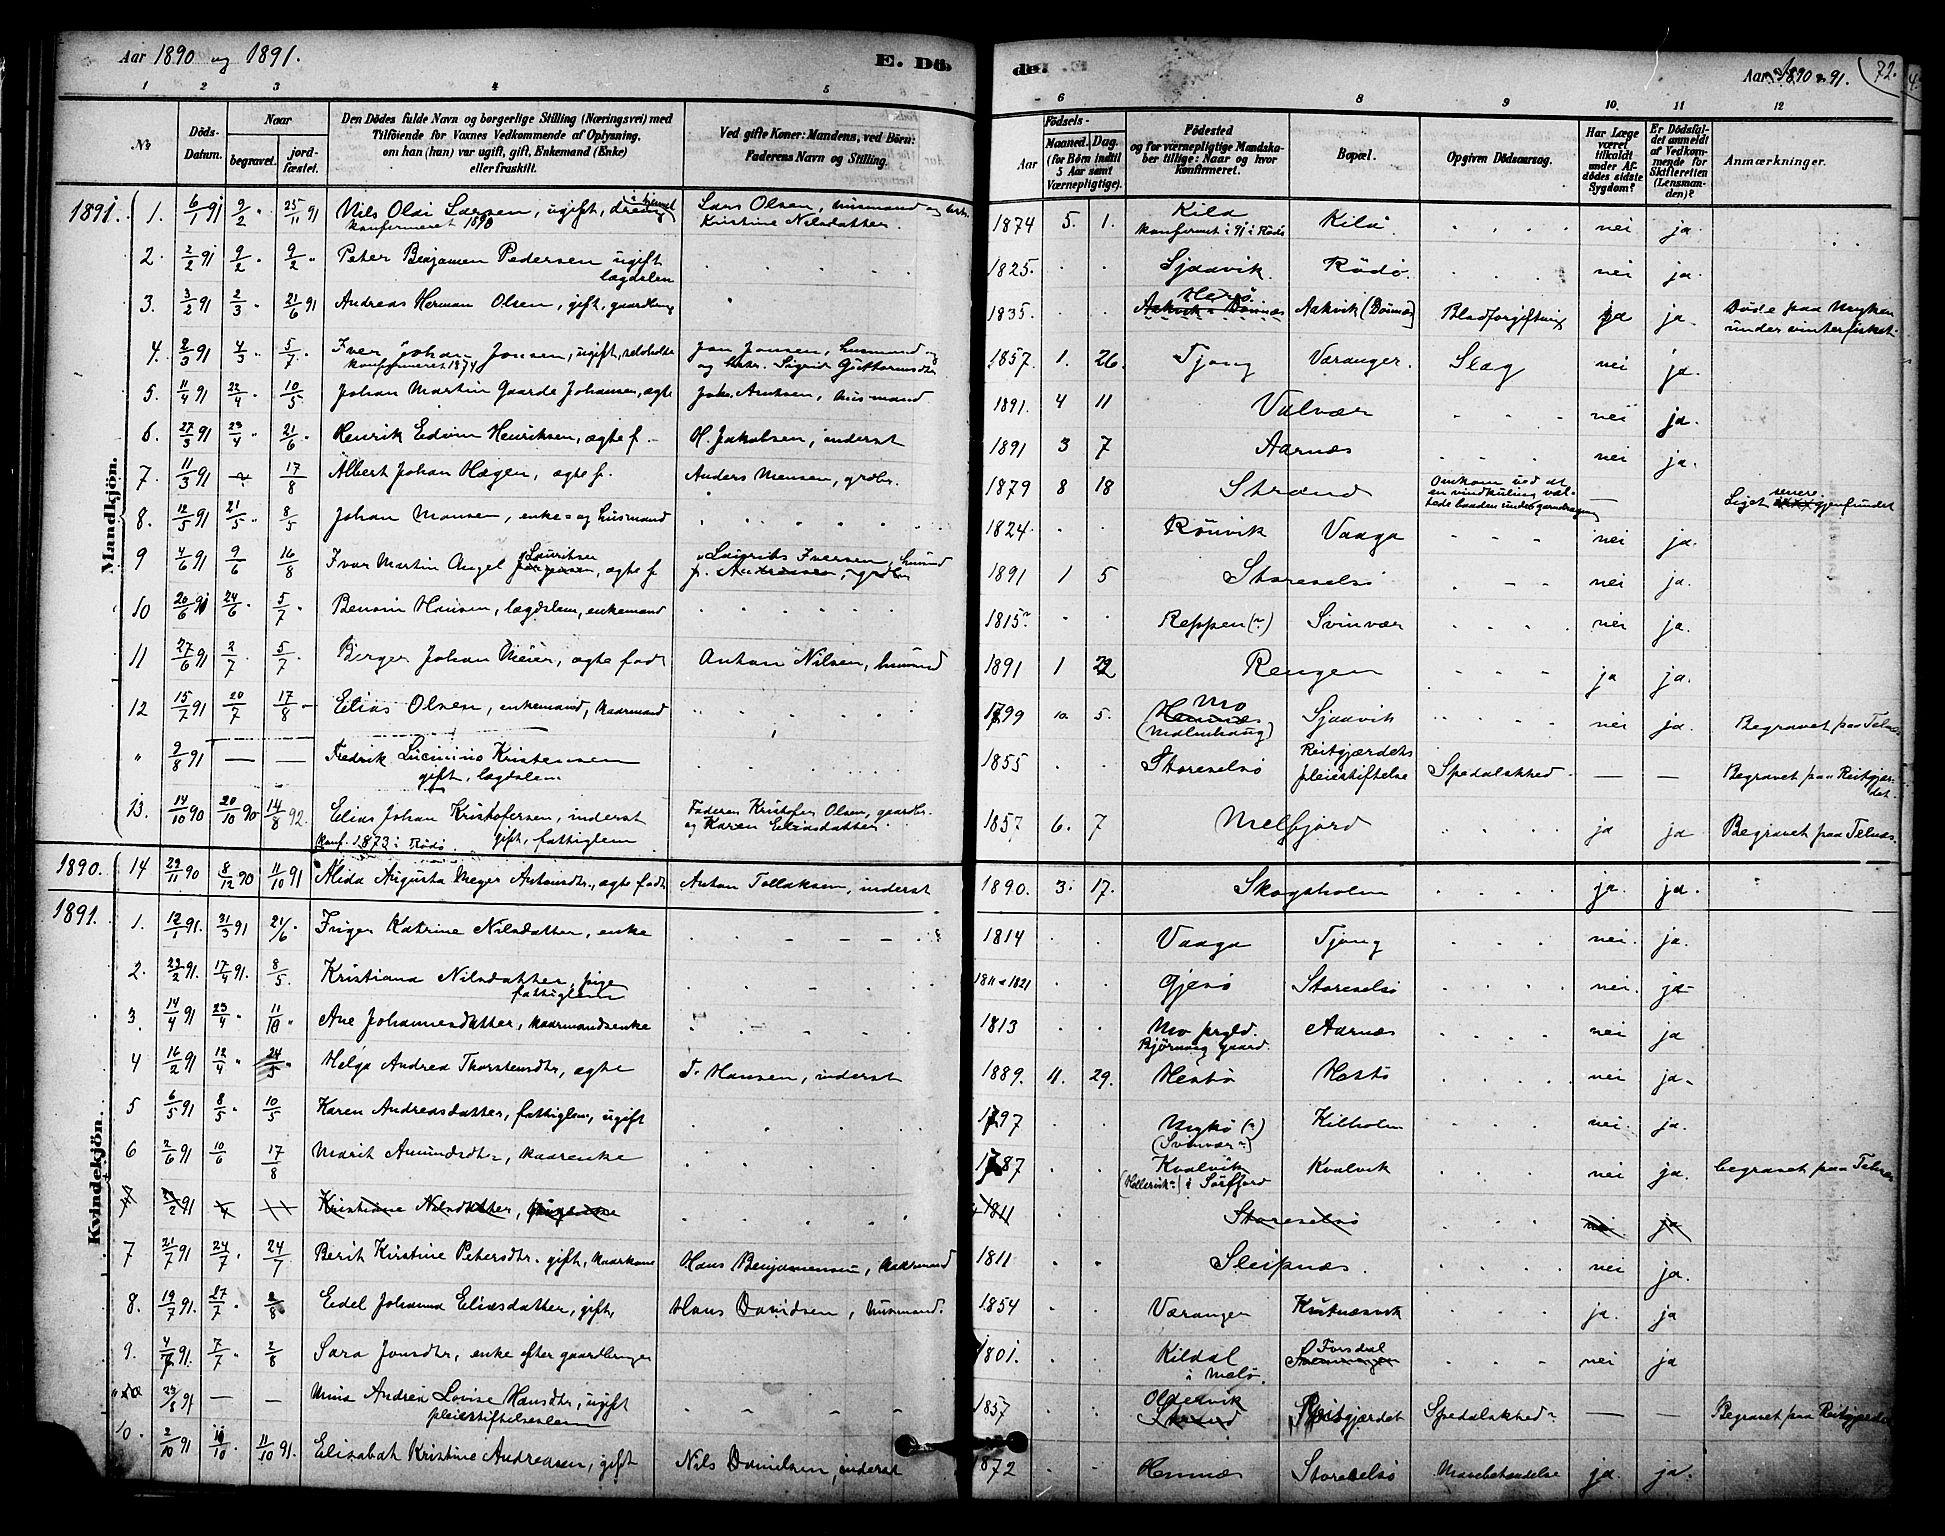 Aar 1890 og 1891.
E. Dö
de.
Aar 1890 & 91.
72.
1 2 3 4 5
6 8 9 10. 11 12
No
Döds-Datum.
Naar
begravet.
jordfæstet.
Den Dödes fulde Navn og borgerlige Stilling (Næringsvei) med
Tilföiende for Voxnes Vedkommende af Oplysning,
om han (hun) var ugift, gift, Enkemand (Enke)
eller fraskilt.
Ved gifte Koner: Mandens, ved Börn:
Faderens Navn og Stilling.
Födsels-
Aar
Maaned. Dag.
(for Börn indtil
5 Aar samt
Værnepligtige).
Födested
og for værnepligtige Mandska-
ber tillige: Naar og hvor
konfirmeret.
Bopæl.
Opgiven Dödsaarsag.
Har Læge
været
tilkaldt
under Af-
dödes sidste
Sygdom?
Er Dödsfal-
det anmeldt
af Vedkom-
mende for
Skifteretten
(Lensman-
den)?
Anmærkninger.
Mandkjön.
1891. 1. 6/1 91 9/2 " 25/11 91 Nils Olai Larsen, ugift, dreng Lars Olsen, husmand og 1874 5. 1. Kila Kila nei ja.
konfirmeret 1890 Kristine Nilsdatter. konfirmert i 91 i Rödö
2. 2/2 91 9/2 " 9/2 " Peter Benjamen Pedersen ugift 1825. Sjaavik Rödö. nei ja.
lægdslem
3. 3/2 91 2/3 " 21/6 91 Andreas Herman Olsen, gift, gaardbrug 1835. Herö Aakvik (Dönnæs) Blodforgiftnig ja ja. Döde paa Myken
under vinterfisket.
4. 2/3 91 4/3 " 5/7 " Iver Johan Jonsen, ugift, Jon Jonsen, husmand og 1857. 1. 26. Tjong Væranger. Slag nei ja.
konfirmeret 1874 og hstr. Sigrid Guttormsdtr
5. 11/4 91 22/4 " 10/5 " Johan Martin Gaarde Johansen, ægte Joh. Arntsen, husmand 1891. 4 11 Valvær nei ja.
6. 27/3 91 23/4 " 21/6 " Henrik Edvin Henriksen, ægte f. H. Jakobsen, inderst 1891 3 7 Aarnæs nei ja.
7. 11/3 91 17/8 Albert Johan Hagen, ægte f. Anders Monsen, grdbr. 1879 8 18 Strand Omkom ved at — ja. Liget senere gjenfundet
en vindkuling væl-
tede baaden under garndragning
8. 12/5 91 21/5 " 8/5 Johan Monsen, enke= og husmand 1824. Rönvik Vaaga nei ja.
9 4/6 91 9/6 16/8 Ivar Martin Angel Lauritsen, ægte f. Laurits Iversen, husmd 1891 1 5 Storeselsö nei ja.
10 20/6 91 24/6 5/7 " Bensin Hansen, lægdslem, enkemand 1815 Reppen Svinvær nei ja.
11 27/6 91 2/7 5/7 Berger Johan Meier, ægte født Anton Nilsen, husmd 1891 1 22 Rengen ja ja.
12 15/7 91 20/7 17/8 Elias Olsen, enkemand, kaarmand 1799 10. 5. Mo Sjaavik nei ja. Begravet paa Telnæs
(Malmhaug)
" 9/8 91 — — Fredrik Lucinius Kristensen 1855 Storeselsö Reitgjærdets pleierstiftelse Spedalskhed. — — Begravet paa Reitgjær-
gift, lægdslem det.
13. 14/10 90 20/10 90 14/8 92. Elias Johan Kristofersen, inderst Faderen Kristofer Olsen, gaardbr. 1857 6. 7 Melfjord ja ja Begravet paa Telnæs.
konf. 1873 i Rödö. gift, fattiglem og Karen Eliasdatter.
Kvindekjön.
1890. 14 29/11 90 8/12 90 11/10 91 Alida Augusta Meyer Antonsdtr., ægte født Anton Tollaksen, inderst 1890. 3. 17. Skogsholm ja. ja.
1891. 1. 12/1 91. 31/3 91 21/6 " Inger Katrine Nilsdatter, enke 1814 Vaaga Tjong nei. ja.
2. 23/2 91. 17/4 91. 8/5. Kristiana Nilsdatter, pige 1811 a 1821 Gjesö Storeselsö nei. ja
fattiglem
3. 14/4 91 23/4 " 11/10 " Ane Johannesdatter, kaarmandsenke 1813 Mo prgld. Aarnæs nei ja
Bjørnvig gaard.
4 16/2 91 12/4 " 24/5 Helga Andrea Thorstensdtr, ægte T. Hansen, inderst 1889. 11. 29. Hestö Hestö nei ja.
5 6/5 91 8/5 " 10/5 Karen Andreasdatter, fattiglem, ugift 1797 Mykö Kilholm nei. ja.
(Svinvær)
6 2/6 91 10/6 17/8 Marit Amundsdtr, kaarenke 1787 Kvalvik Kvalvik nei ja. begravet paa Telnæs
i Sörfjord
7 2/2 91 Kristiane Nilsdatter, 1811 Storeselsö nei ja
7 21/7 91 24/7 " 24/7 Berit Kirstine Petersdtr. gift, kaarkone Hans Benjamensen, kaarmand 1811 Sleipnæs. nei ja.
8. 19/7 91. 27/7 " 2/8 Edel Johanna Eliasdatter, gift, Hans Davidsen, husmand. 1854 Væranger ja. ja
9. 4/7 91. 7/7 " 2/8 Sara Jonsdtr, enke efter gaardbruger 1801. Kildal Forsdal nei ja
i Melö.
" 23/8 91 — — Mina Andrea Lovise Hansdtr, ugift 1857 Oldervik Reitgjærdet Spedalskhed — — Begravet paa Reitgjærdet
pleiestiftelseslem
10. 2/10 91 10/10 " 11/10 91. Elisabet Kristine Andreasen, gift Nils Danielsen, inderst 1872 Hemnæs Storeselsö ja. ja.